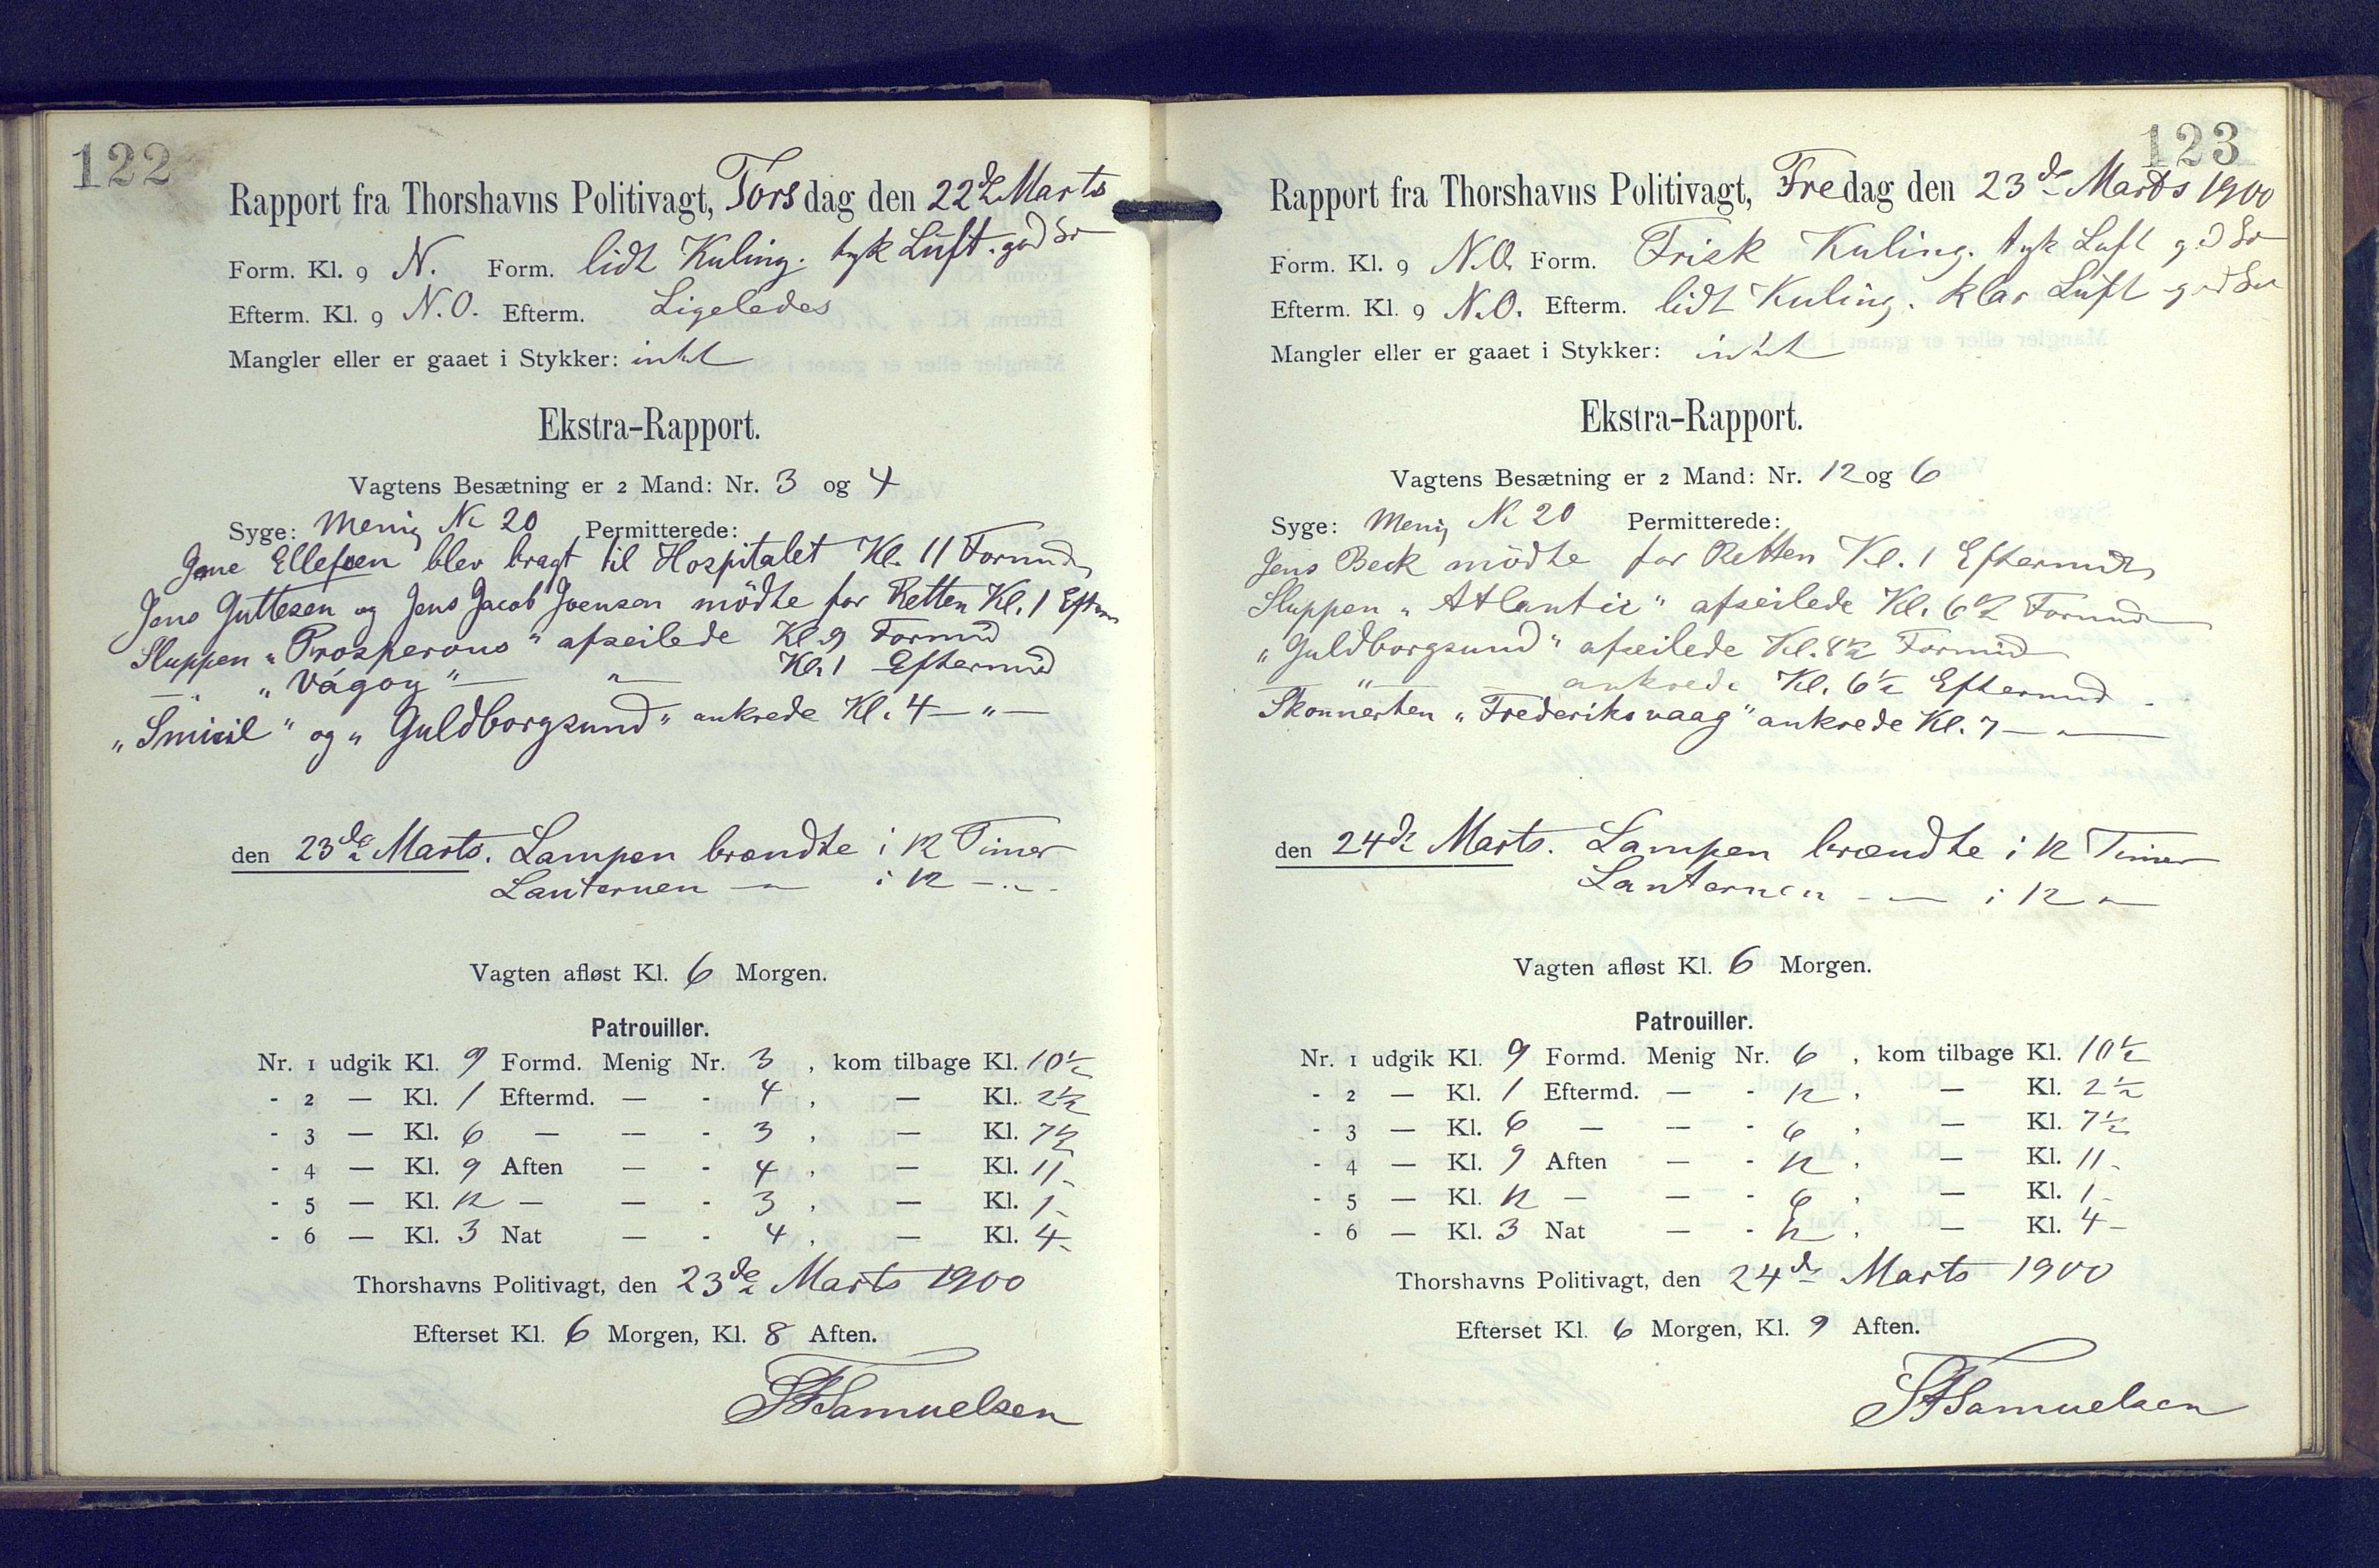 122
Rapport fra Thorshavns Politivagt, Torsdag den 22de Marts
Form. Kl. 9 N. Form. lidt Kuling. tyk Luft. god Sø
Efterm. Kl. 9 N.O. Efterm. Ligeledes
Mangler eller er gaaet i Stykker: intet
Ekstra-Rapport.
Vagtens Besætning er 2 Mand: Nr. 3 og 4
Syge: Menig No 20 Permitterede:
Ellefsen blev bragt til Hospitalet Kl. 11 Formid
Jens Guttesen og Jens Jacob Joensen mödte for Retten Kl. 1 Efterm
Sluppen „Prosperous" afseilede Kl. 9 Formid
— „ „Vágoy" — „ — Kl. 1 Eftermid
„Smiril" og „Guldborgsund" ankrede Kl. 4 — „ —
den 23de Marts. Lampen brændte i 12 Timer
Lanternen — „ — i 12 — „ —
Vagten afløst Kl. 6 Morgen.
Patrouiller.
Nr. 1 udgik Kl. 9 Formd. Menig Nr. 3 , kom tilbage Kl. 10½
- 2 — Kl. 1 Eftermd. — - 4 , — Kl. 2½
- 3 — Kl. 6 — — - 3 , — Kl. 7½
- 4 — Kl. 9 Aften — - 4 , — Kl. 11-
- 5 — Kl. 12 — — - 3 , — Kl. 1-
- 6 — Kl. 3 Nat — - 4 , — Kl. 4-
Thorshavns Politivagt, den 23de Marts 1900
Efterset Kl. 6 Morgen, Kl. 8 Aften.
SFSamuelsen
123
Rapport fra Thorshavns Politivagt, Fredag den 23de Marts 1900
Form. Kl. 9 N.O. Form. Frisk Kuling. tyk Luft god Sø
Efterm. Kl. 9 N.O. Efterm. lidt Kuling. klar Luft god Sø
Mangler eller er gaaet i Stykker: intet
Ekstra-Rapport.
Vagtens Besætning er 2 Mand: Nr. 12 og 6
Syge: Menig No 20 Permitterede:
Jens Beck mödte for Retten Kl. 1 Eftermid
Sluppen „Atlantic" afseilede Kl. 6½ Formid
„Guldborgsund" afseilede Kl. 8½ Formid
— „ — ankrede Kl. 6½ Eftermid
Skonnerten „Frederiksvaag" ankrede Kl. 7 — „ —
den 24de Marts. Lampen brændte i 12 Timer
Lanternen — „ — i 12 „ —
Vagten afløst Kl. 6 Morgen.
Patrouiller.
Nr. 1 udgik Kl. 9 Formd. Menig Nr. 6 , kom tilbage Kl. 10½
- 2 — Kl. 1 Eftermd. — - 12 , — Kl. 2½
- 3 — Kl. 6 — — - 6 , — Kl. 7½
- 4 — Kl. 9 Aften — - 12 , — Kl. 11-
- 5 — Kl. 12 — — - 6 , — Kl. 1-
- 6 — Kl. 3 Nat — - 12 , — Kl. 4-
Thorshavns Politivagt, den 24de Marts 1900
Efterset Kl. 6 Morgen, Kl. 9 Aften.
SFSamuelsen